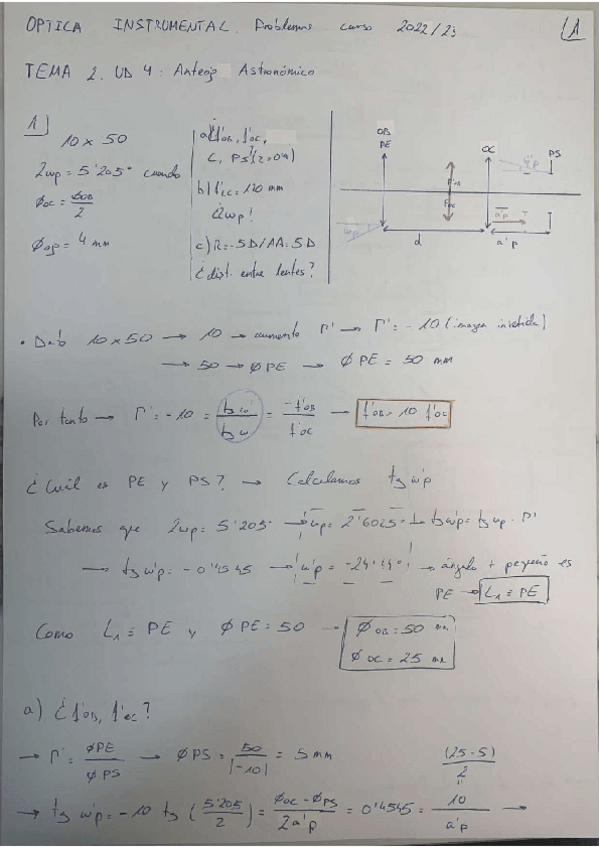 OPTICA INSTRUMENTAL. Problemas curso 2022/23
1A
TEMA 2. UD 4: Anteojo Astronómico
1)
10 x 50
2wp = 5'205° cuando
ØOC = ØOB/2
Øop = 4 mm
a) f'OB, f'OC,
b) f'CC = 120 mm
¿2wp?
c) R = -5D / AA = 5D
¿dist. entre lentes?
OB
PE
OC
PS
w'p
F'OB
FOC
wp
a'p
d
a'p
• Dato 10x50 → 10 → aumento Γ' → Γ' = -10 (imagen invertida)
→ 50 → ØPE → ØPE = 50 mm
Por tanto → Γ' = -10 = tg w'/tg w = -f'OB/f'OC → f'OB = 10 f'OC
¿Cuál es PE y PS? → Calculamos tg w'p
Sabemos que 2wp = 5'205° → wp = 2'6025° → tg w'p = tg wp · Γ'
→ tg w'p = -0'4545 → w'p = → ángulo + pequeño es
PE → L1 ≡ PE
Como L1 ≡ PE y ØPE = 50 → ØOB = 50 mm
ØOC = 25 mm
a) ¿f'OB, f'OC?
→ Γ' = ØPE/ØPS → ØPS = 50/|-10| = 5 mm
(25-5)/2
→ tg w'p = -10 tg (5'205/2) = ØOC - ØPS/2a'p = 0'4545 = 10/a'p →